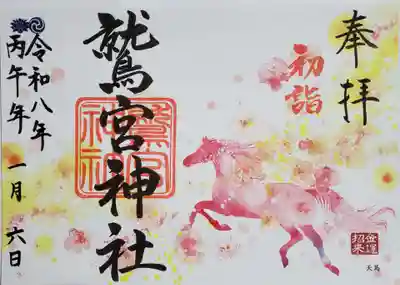 奉拝
初詣
鷲宮神社
鷲宮神社
令和八年
丙午年 一月 六日
金運
招来
天馬